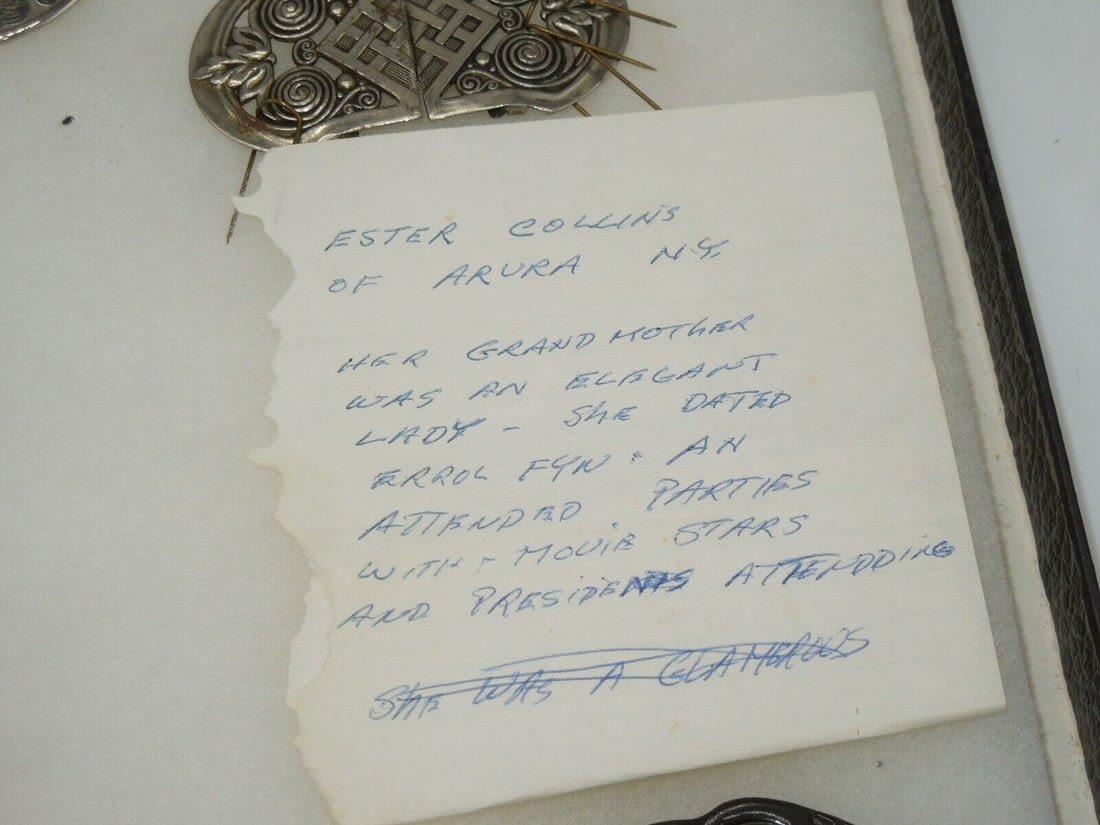 ESTER COLLINS
OF ARURA N.Y.
HER GRANDMOTHER
WAS AN ELEGANT
LADY - SHE DATED
ERROL FYN. AN
ATTENDED PARTIES
WITH - MOVIE STARS
AND PRESIDENTS ATTENDDING
SHE WAS A GLAMEROUS